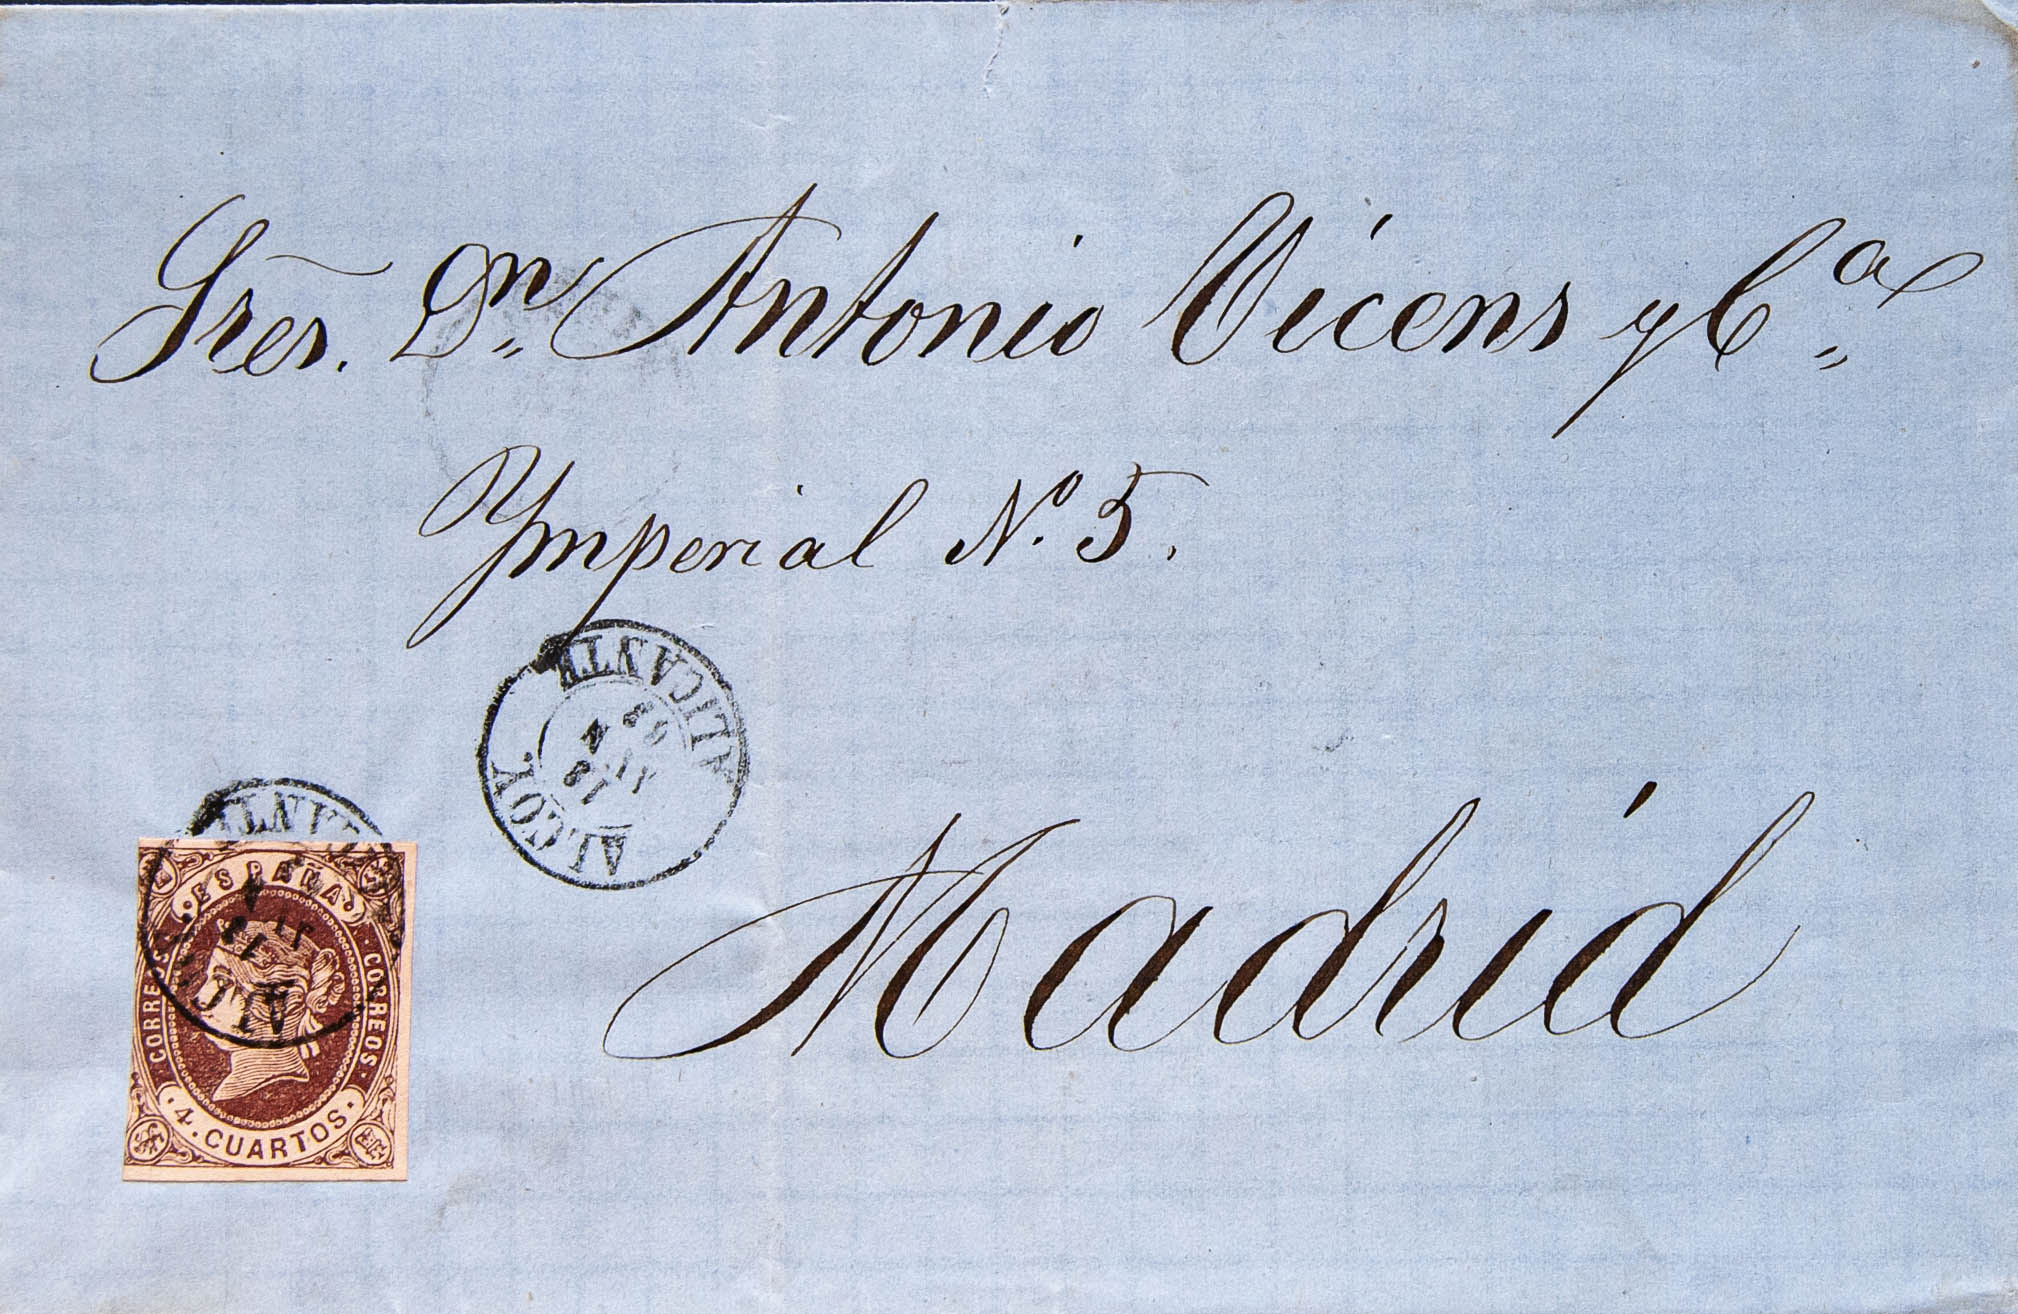 Sres. Dn. Antonio Vicens y Cª
Ymperial Nº 5.
ALICANTE
18
ALCOY
Madrid
ESPAÑA
CORREOS
CORREOS
4. CUARTOS